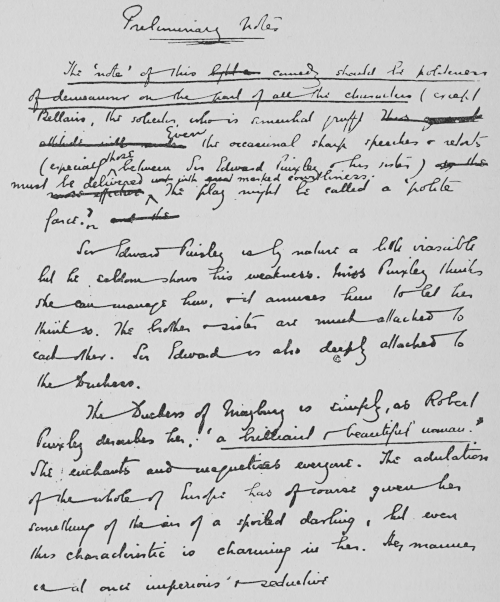 Preliminary Notes
The 'note' of this comedy should be politeness
of demeanour on the part of all the characters (except
Bellairs, the solicitor, who is somewhat gruff)
Even the occasional sharp speeches & retorts
(especially those between Sir Edward Purxley & his sister)
must be delivered with marked courtliness.
The play might be called a 'polite
farce.'
Sir Edward Purxley is by nature a little irascible
but he seldom shows his weakness. Miss Purxley thinks
she can manage him, & it amuses him to let her
think so. The brother & sister are much attached to
each other. Sir Edward is also deeply attached to
the Duchess.
The Duchess of is simply, as Robert
Purxley describes her, "a brilliant & beautiful woman."
She enchants and magnetises everyone. The adulation
of the whole of Europe has of course given her
something of the air of a spoiled darling, but even
this characteristic is charming in her. Her manner
is at once imperious & seductive